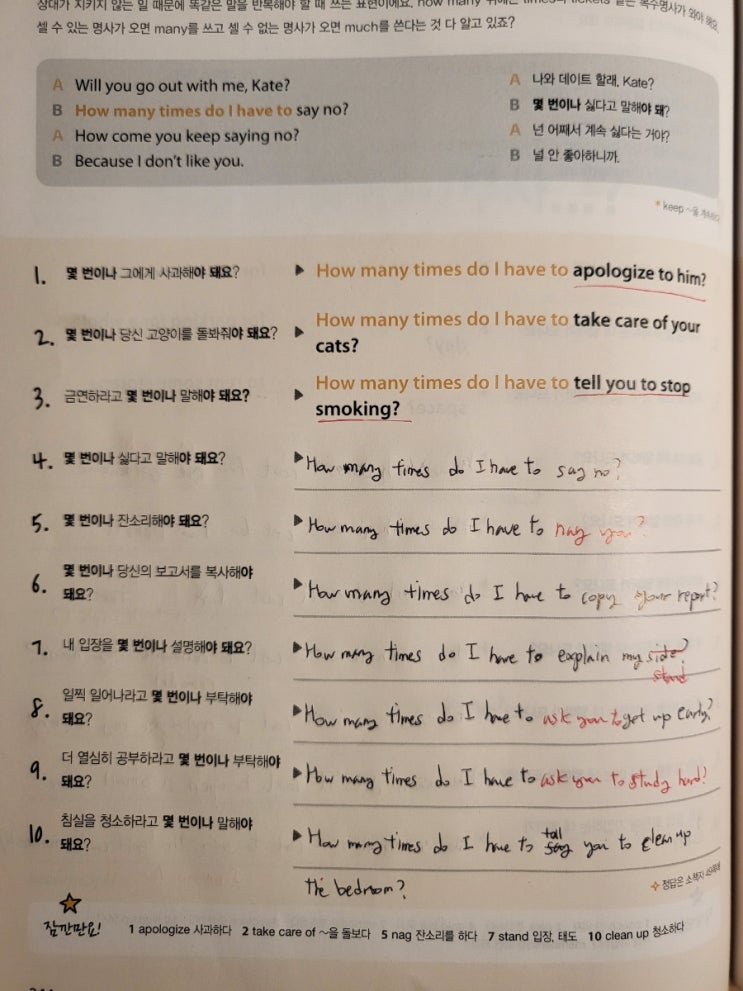 상대가 지키지 않는 일 때문에 똑같은 말을 반복해야 할 때 쓰는 표현이에요. how many 뒤에는 times나 tickets 같은 복수명사가 와야 해요.
셀 수 있는 명사가 오면 many를 쓰고 셀 수 없는 명사가 오면 much를 쓴다는 것 다 알고 있죠?
A Will you go out with me, Kate?
B How many times do I have to say no?
A How come you keep saying no?
B Because I don't like you.
A 나와 데이트 할래, Kate?
B 몇 번이나 싫다고 말해야 돼?
A 넌 어째서 계속 싫다는 거야?
B 널 안 좋아하니까.
* keep ~을 계속하다
1. 몇 번이나 그에게 사과해야 돼요? ▶ How many times do I have to apologize to him?
2. 몇 번이나 당신 고양이를 돌봐줘야 돼요? ▶ How many times do I have to take care of your
cats?
3. 금연하라고 몇 번이나 말해야 돼요? ▶ How many times do I have to tell you to stop
smoking?
4. 몇 번이나 싫다고 말해야 돼요? ▶ How many times do I have to say no?
5. 몇 번이나 잔소리해야 돼요? ▶ How many times do I have to nag you?
6. 몇 번이나 당신의 보고서를 복사해야
돼요? ▶ How many times do I have to copy your report?
7. 내 입장을 몇 번이나 설명해야 돼요? ▶ How many times do I have to explain my side?
stand
8. 일찍 일어나라고 몇 번이나 부탁해야
돼요? ▶ How many times do I have to ask you to get up early?
9. 더 열심히 공부하라고 몇 번이나 부탁해야
돼요? ▶ How many times do I have to ask you to study hard?
10. 침실을 청소하라고 몇 번이나 말해야
돼요? ▶ How many times do I have to tell say you to clean up
the bedroom?
정답은 소책자
잠깐만요!
1 apologize 사과하다 2 take care of ~을 돌보다 5 nag 잔소리를 하다 7 stand 입장, 태도 10 clean up 청소하다